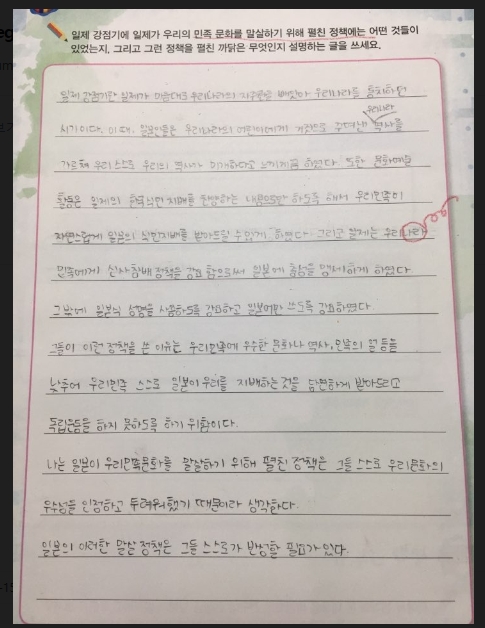 일제 강점기에 일제가 우리의 민족 문화를 말살하기 위해 펼친 정책에는 어떤 것들이
있었는지, 그리고 그런 정책을 펼친 까닭은 무엇인지 설명하는 글을 쓰세요.
일제 강점기란 일제가 마음대로 우리나라의 자주권을 빼앗아 우리나라를 통치하던
우리나라
시기이다. 이 때, 일본인들은 우리나라의 어린이에게 거짓으로 꾸며낸 역사를
가르쳐 우리 스스로 우리의 역사가 미개하다고 느끼게 하였다. 또한 문화예술
활동은 일제의 식민 지배를 찬양하는 내용으로만 하도록 해서 우리민족이
자연스럽게 일본의 식민지배를 받아드릴 수 있게 하였다. 그리고 일제는 우리나라
민족에게 신사참배 정책을 강요함으로써 일본에 충성을 맹세하게 하였다.
그 밖에 일본식 성명을 사용하도록 강요하고 일본어만 쓰도록 강요하였다.
그들이 이런 정책을 쓴 이유는 우리민족에 우수한 문화나 역사, 민족의 얼 등을
낮추어 우리민족 스스로 일본이 우리를 지배하는 것을 당연하게 받아드리고
독립운동을 하지 못하도록 하기 위함이다.
나는 일본이 우리민족문화를 말살하기 위해 펼친 정책은 그들 스스로 우리문화의
우수성을 인정하고 두려워했기 때문이라 생각한다.
일본의 이러한 말살 정책은 그들 스스로가 반성할 필요가 있다.